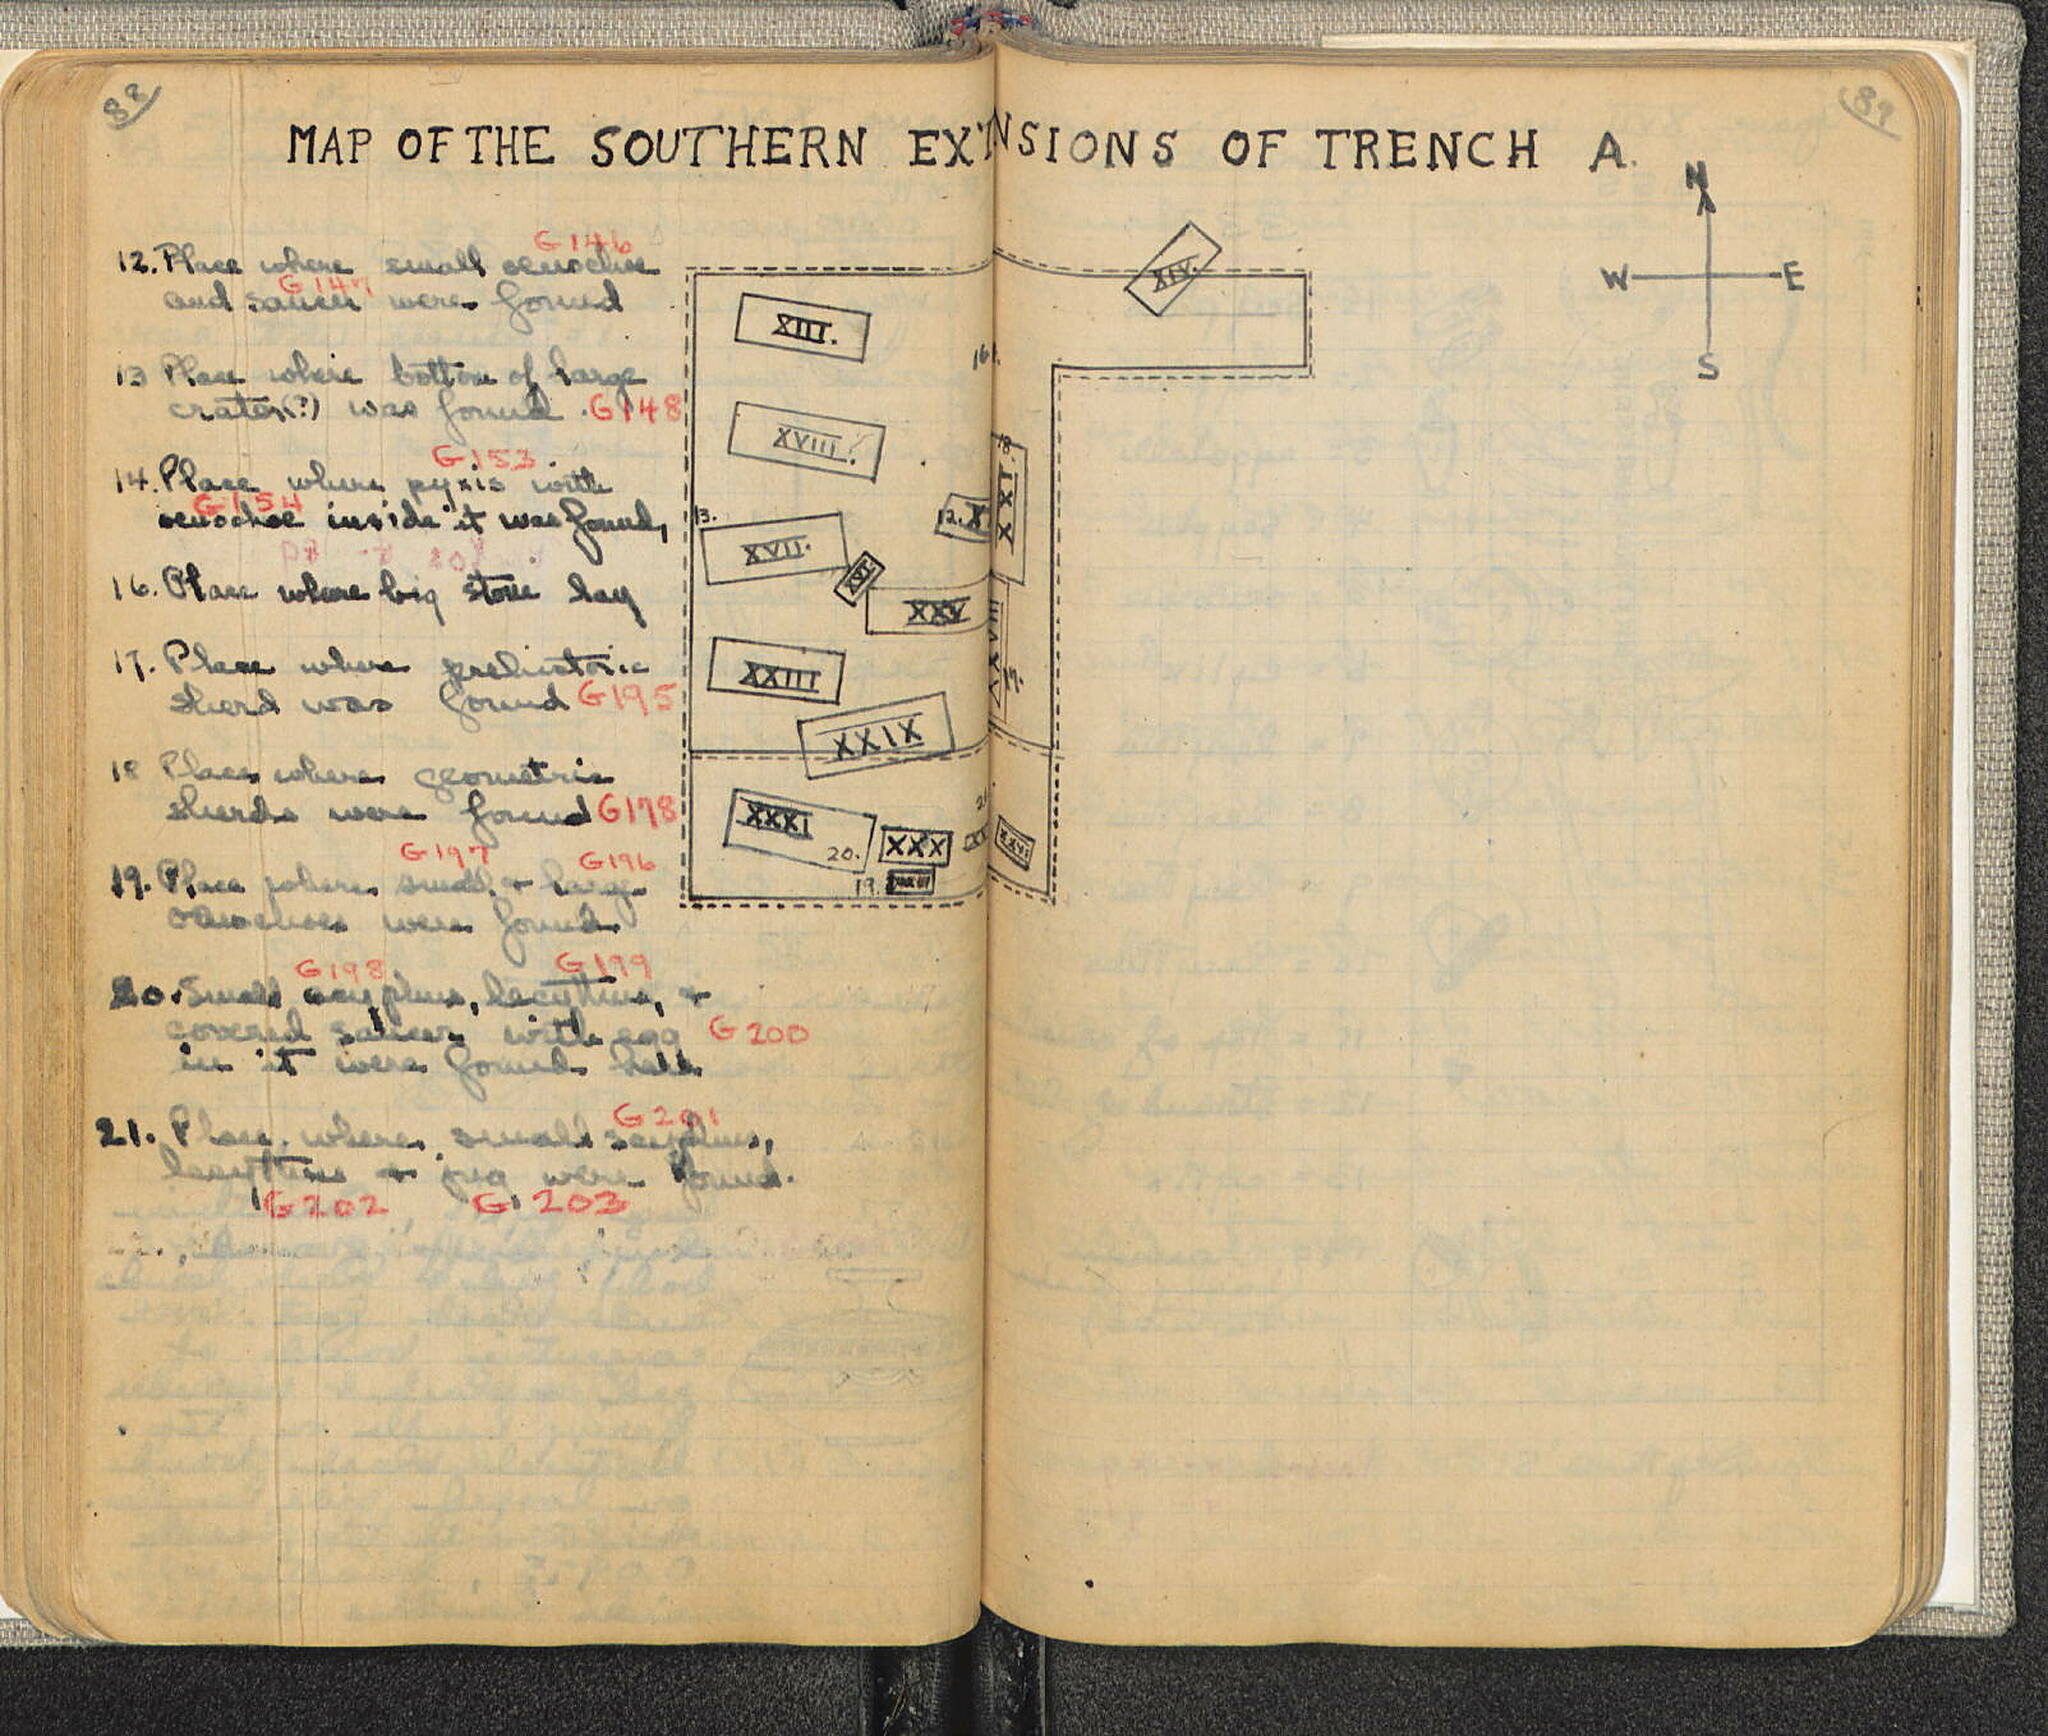 88
89
MAP OF THE SOUTHERN EXTNSIONS OF TRENCH A.
N
W E
S
G146
12. Place where small oenochoe
G147
and saucer were found
13 Place where bottom of large
crater(?) was found. G148
G153
14. Place where pyxis with
G154
oenochoe inside it was found,
16. Place where big stone lay
17. Place where prehistoric
sherd was found G195
18 Place where geometric
sherds were found G178
G197 G196
19. Place where small & large
oenochoes were found
G198 G199
20. Small scyphus, lecythus, &
covered saucer with egg G200
in it were found here
G201
21. Place where small scyphus,
lecythus & jug were found.
G202 G203
XIII.
XIV.
16.
XVIII?
18.
XXI
13.
12. X
XVII.
XXV
XXIII
17.
XXIX
XXXI
20.
XXX
21
XXVI
19.